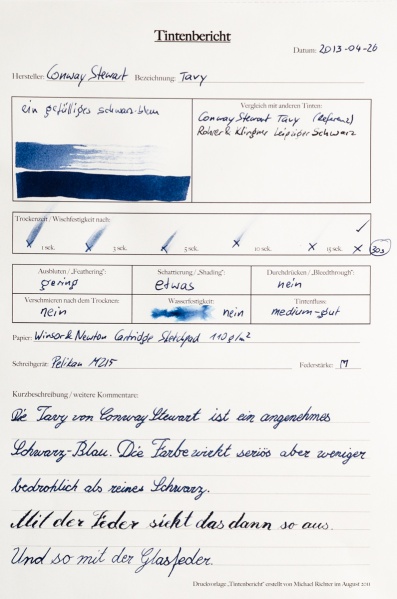 Tintenbericht
Datum: 2013-04-26
Hersteller: Conway Stewart Bezeichnung: Tavy
ein gefälliges schwarz-blau
Vergleich mit anderen Tinten:
Conway Stewart Tavy (Referenz)
Rohrer & Klingner Leipziger Schwarz
Trockenzeit / Wischfestigkeit nach:
1 sek. 3 sek. 5 sek. 10 sek. 15 sek. 30s
Ausbluten / „Feathering“: Schattierung / „Shading“: Durchdrücken / „Bleedthrough“:
gering etwas nein
Verschmieren nach dem Trocknen: Wasserfestigkeit: Tintenfluss:
nein nein medium-gut
Papier: Winsor & Newton Cartridge Sketchpad 110 g/m²
Schreibgerät: Pelikan M215 Federstärke: M
Kurzbeschreibung / weitere Kommentare:
Die Tavy von Conway Stewart ist ein angenehmes
Schwarz-Blau. Die Farbe wirkt seriös aber weniger
bedrohlich als reines Schwarz.
Mit der Feder sieht das dann so aus.
Und so mit der Glasfeder.
Druckvorlage „Tintenbericht“ erstellt von Michael Richter im August 2011